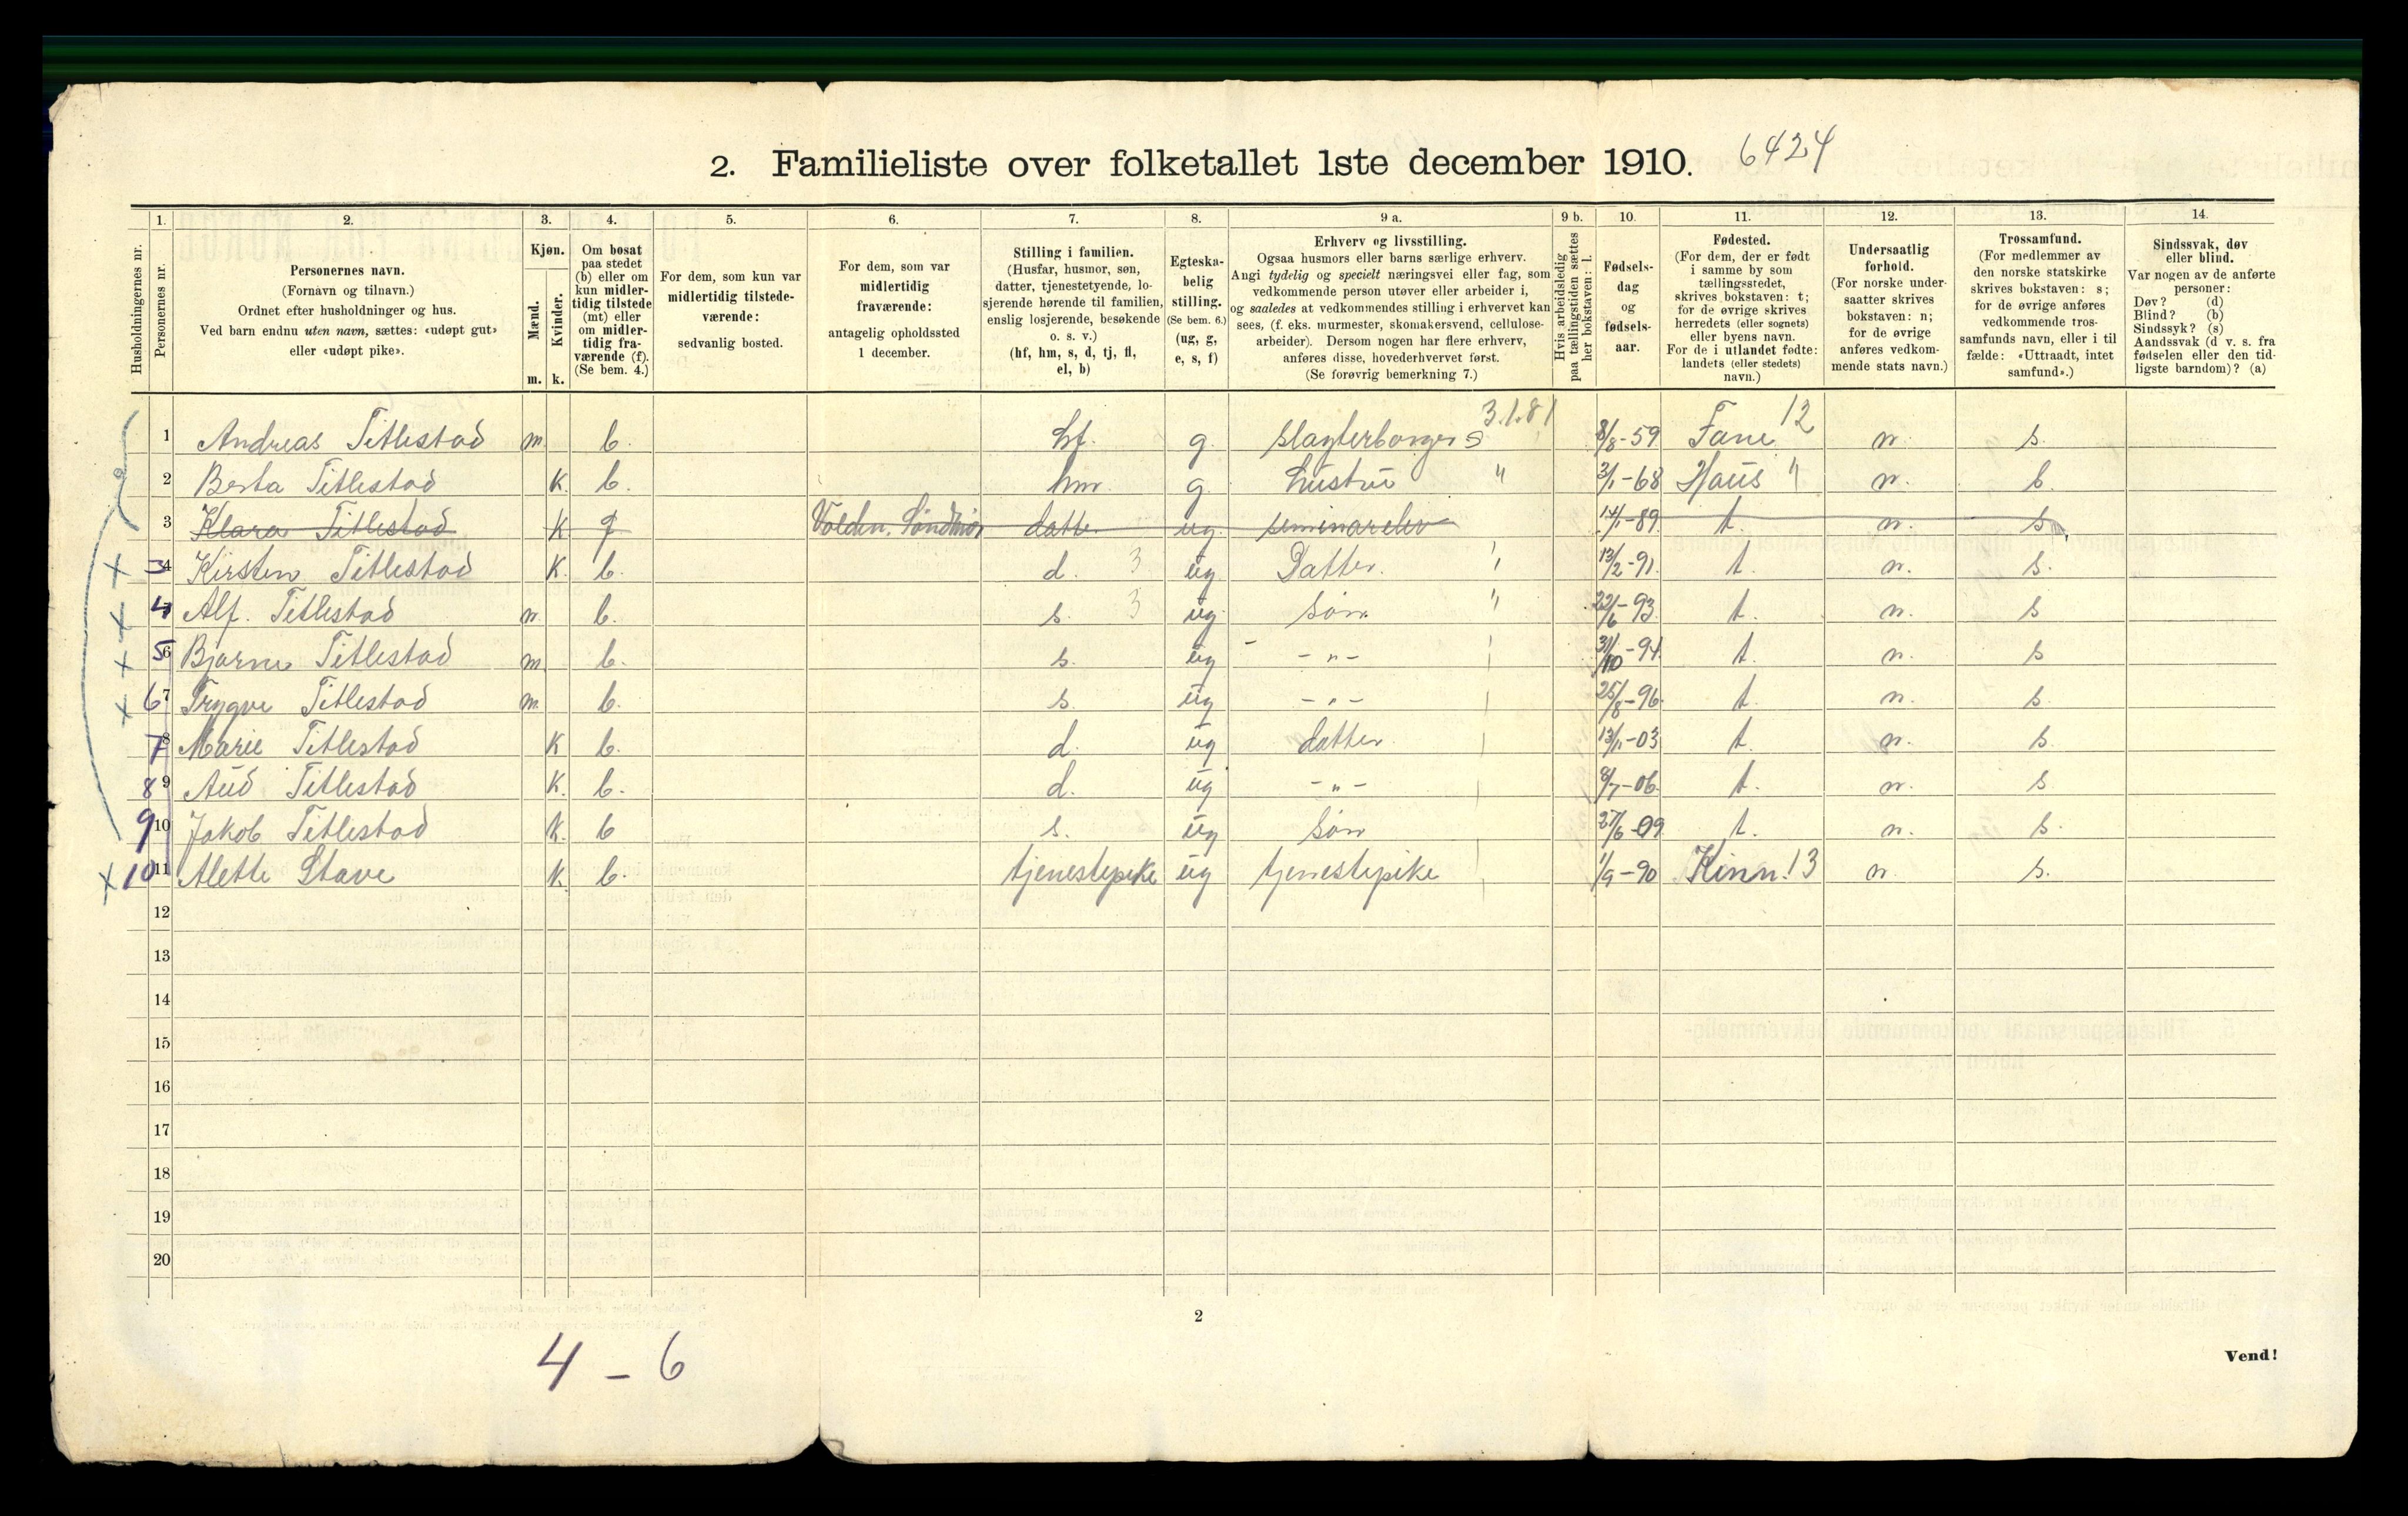 2. Familieliste over folketallet 1ste december 1910. 6424
1. 2. 3. 4. 5. 6. 7. 8. 9 a. 9 b. 10. 11. 12. 13. 14.
Husholdningernes nr.
Personernes nr.
Personernes navn.
(Fornavn og tilnavn.)
Ordnet efter husholdninger og hus.
Ved barn endnu uten navn, sættes: «udøpt gut»
eller «udøpt pike».
Kjøn.
Mænd.
Kvinder.
m. k.
Om bosat
paa stedet
(b) eller om
kun midler-
tidig tilstede
(mt) eller
om midler-
tidig fra-
værende (f).
(Se bem. 4.)
For dem, som kun var
midlertidig tilstede-
værende:
sedvanlig bosted.
For dem, som var
midlertidig
fraværende:
antagelig opholdssted
1 december.
Stilling i familien.
(Husfar, husmor, søn,
datter, tjenestetyende, lo-
sjerende hørende til familien,
enslig losjerende, besøkende
o. s. v.)
(hf, hm, s, d, tj, fl,
el, b)
Egteska-
belig
stilling.
(Se bem. 6.)
(ug, g,
e, s, f)
Erhverv og livsstilling.
Ogsaa husmors eller barns særlige erhverv.
Angi tydelig og specielt næringsvei eller fag, som
vedkommende person utøver eller arbeider i,
og saaledes at vedkommendes stilling i erhvervet kan
sees, (f. eks. murmester, skomakersvend, cellulose-
arbeider). Dersom nogen har flere erhverv,
anføres disse, hovederhvervet først.
(Se forøvrig bemerkning 7.)
Hvis arbeidsledig
paa tællingstiden sættes
her bokstaven: l.
Fødsels-
dag
og
fødsels-
aar.
Fødested.
(For dem, der er født
i samme by som
tællingsstedet,
skrives bokstaven: t;
for de øvrige skrives
herredets (eller sognets)
eller byens navn.
For de i utlandet fødte:
landets (eller stedets)
navn.)
Undersaatlig
forhold.
(For norske under-
saatter skrives
bokstaven: n;
for de øvrige
anføres vedkom-
mende stats navn.)
Trossamfund.
(For medlemmer av
den norske statskirke
skrives bokstaven: s;
for de øvrige anføres
vedkommende tros-
samfunds navn, eller i til
fælde: «Uttraadt, intet
samfund».)
Sindssvak, døv
eller blind.
Var nogen av de anførte
personer:
Døv? (d)
Blind? (b)
Sindssyk? (s)
Aandssvak (d v. s. fra
fødselen eller den tid-
ligste barndom)? (a)
3.1.81 12
1 Andreas Titlestad m. b. hf. g. slagterborger S 8/8-59 Fane n. s.
2 Berta Titlestad k. b. hm. g. hustru " 3/1-68 Haus " n. s.
3 Klara Titlestad k f Volden. Søndmør datter ug. seminarelev 14/1-89 t. n. s
3 4 Kirsten Titlestad k. b. d. 3 ug Datter. 13/2-91. t. n. s.
4 Alf. Titlestad m b. s. 3 ug søn. " 22/6-93. t. n. s
5 6 Bjarne Titlestad m b. s. ug - " - 31/10-94. t. n. s
6 7 Trygve Titlestad m. b. s. ug - " - 25/8-96. t. n. s.
7 8 Marie Titlestad k b. d. ug datter 13/11-03 t. n. s.
8 9 Aud Titlestad k. b. d. ug - " - 8/7-06. t. n. s
9 10 Jakob Titlestad k. b s. ug søn 27/6-09 t. n. s.
10 11 Alette Stave k b. tjenestepike ug tjenestepike 1/9-90 Kinn. 13 n. s.
12
13
14
15
16
17
18
19
20
2
4 - 6
Vend!